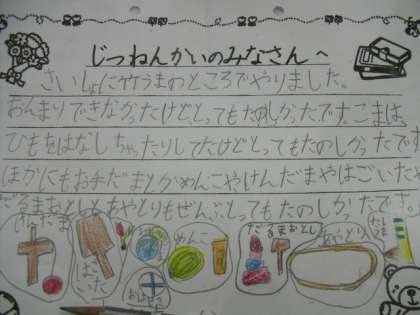 じつねんかいのみなさんへ
さいしょに竹うまのところでやりました。
あんまりできなかったけどとってもたのしかったです。こまは、
ひもをはなしちゃったりしてたけどとってもたのしかったです
ほかにもお手だまとかめんこやけんだまやはごいたや
だるまおとしとあやとりもぜんぶとってもたのしかったです。
けんだま
はごいた
めんこ
だるまおとし
あやとり